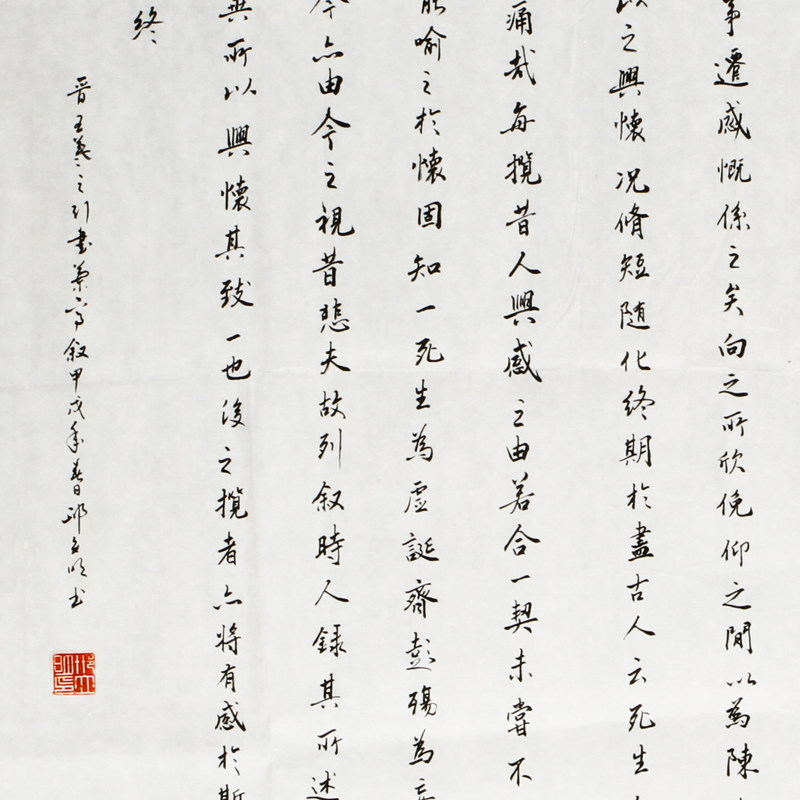 事遷感慨係之矣向之所欣俛仰之閒以為陳
以之興懷况脩短随化終期於盡古人云死生
痛哉每攬昔人興感之由若合一契未嘗不
能喻之於懷固知一死生為虛誕齊彭殤為妄
今亦由今之視昔悲夫故列叙時人錄其所述
異所以興懷其致一也後之攬者亦將有感於斯
終
晋王羲之行書蘭亭叙甲戌年春日邱立明书